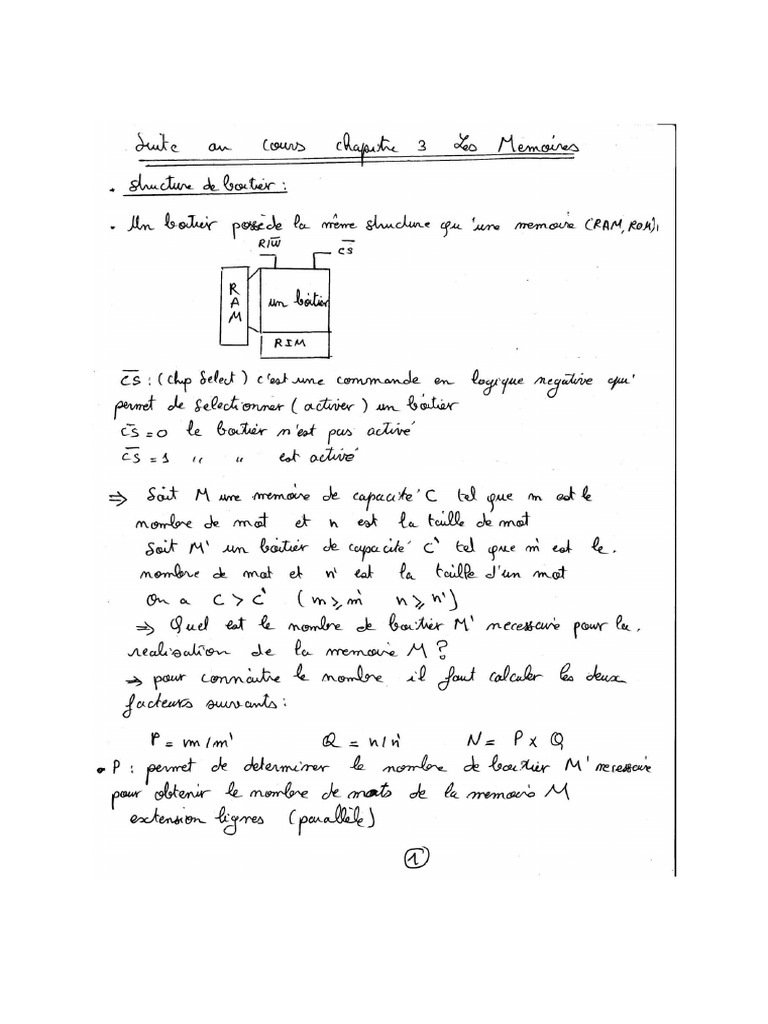 Suite au cours chapitre 3 Les Memoires
. structure de boitier :
. Un boitier possède la même structure qu'une memoire (RAM, ROM),
R/W̅ C̅S̅
RAM un boîtier
RIM
C̅S̅ : (chip Select) c'est une commande en logique negative qui
permet de selectionner (activer) un boîtier
C̅S̅ = 0 le boitier n'est pas activé
C̅S̅ = 1 " " est activé
⇒ Soit M une memoire de capacité C tel que m est le
nombre de mot et n est la taille de mot
Soit M' un boîtier de capacité C' tel que m' est le.
nombre de mot et n' est la taille d'un mot
On a C > C' (m ≥ m' n ≥ n')
⇒ Quel est le nombre de boitier M' necessaire pour la.
realisation de la memoire M ?
⇒ pour connaitre le nombre il faut calculer les deux
facteurs suivants :
P = m/m' Q = n/n' N = P x Q
. P : permet de determiner le nombre de boitier M' necessaire
pour obtenir le nombre de mots de la memoire M
extension lignes (parallèle)
1